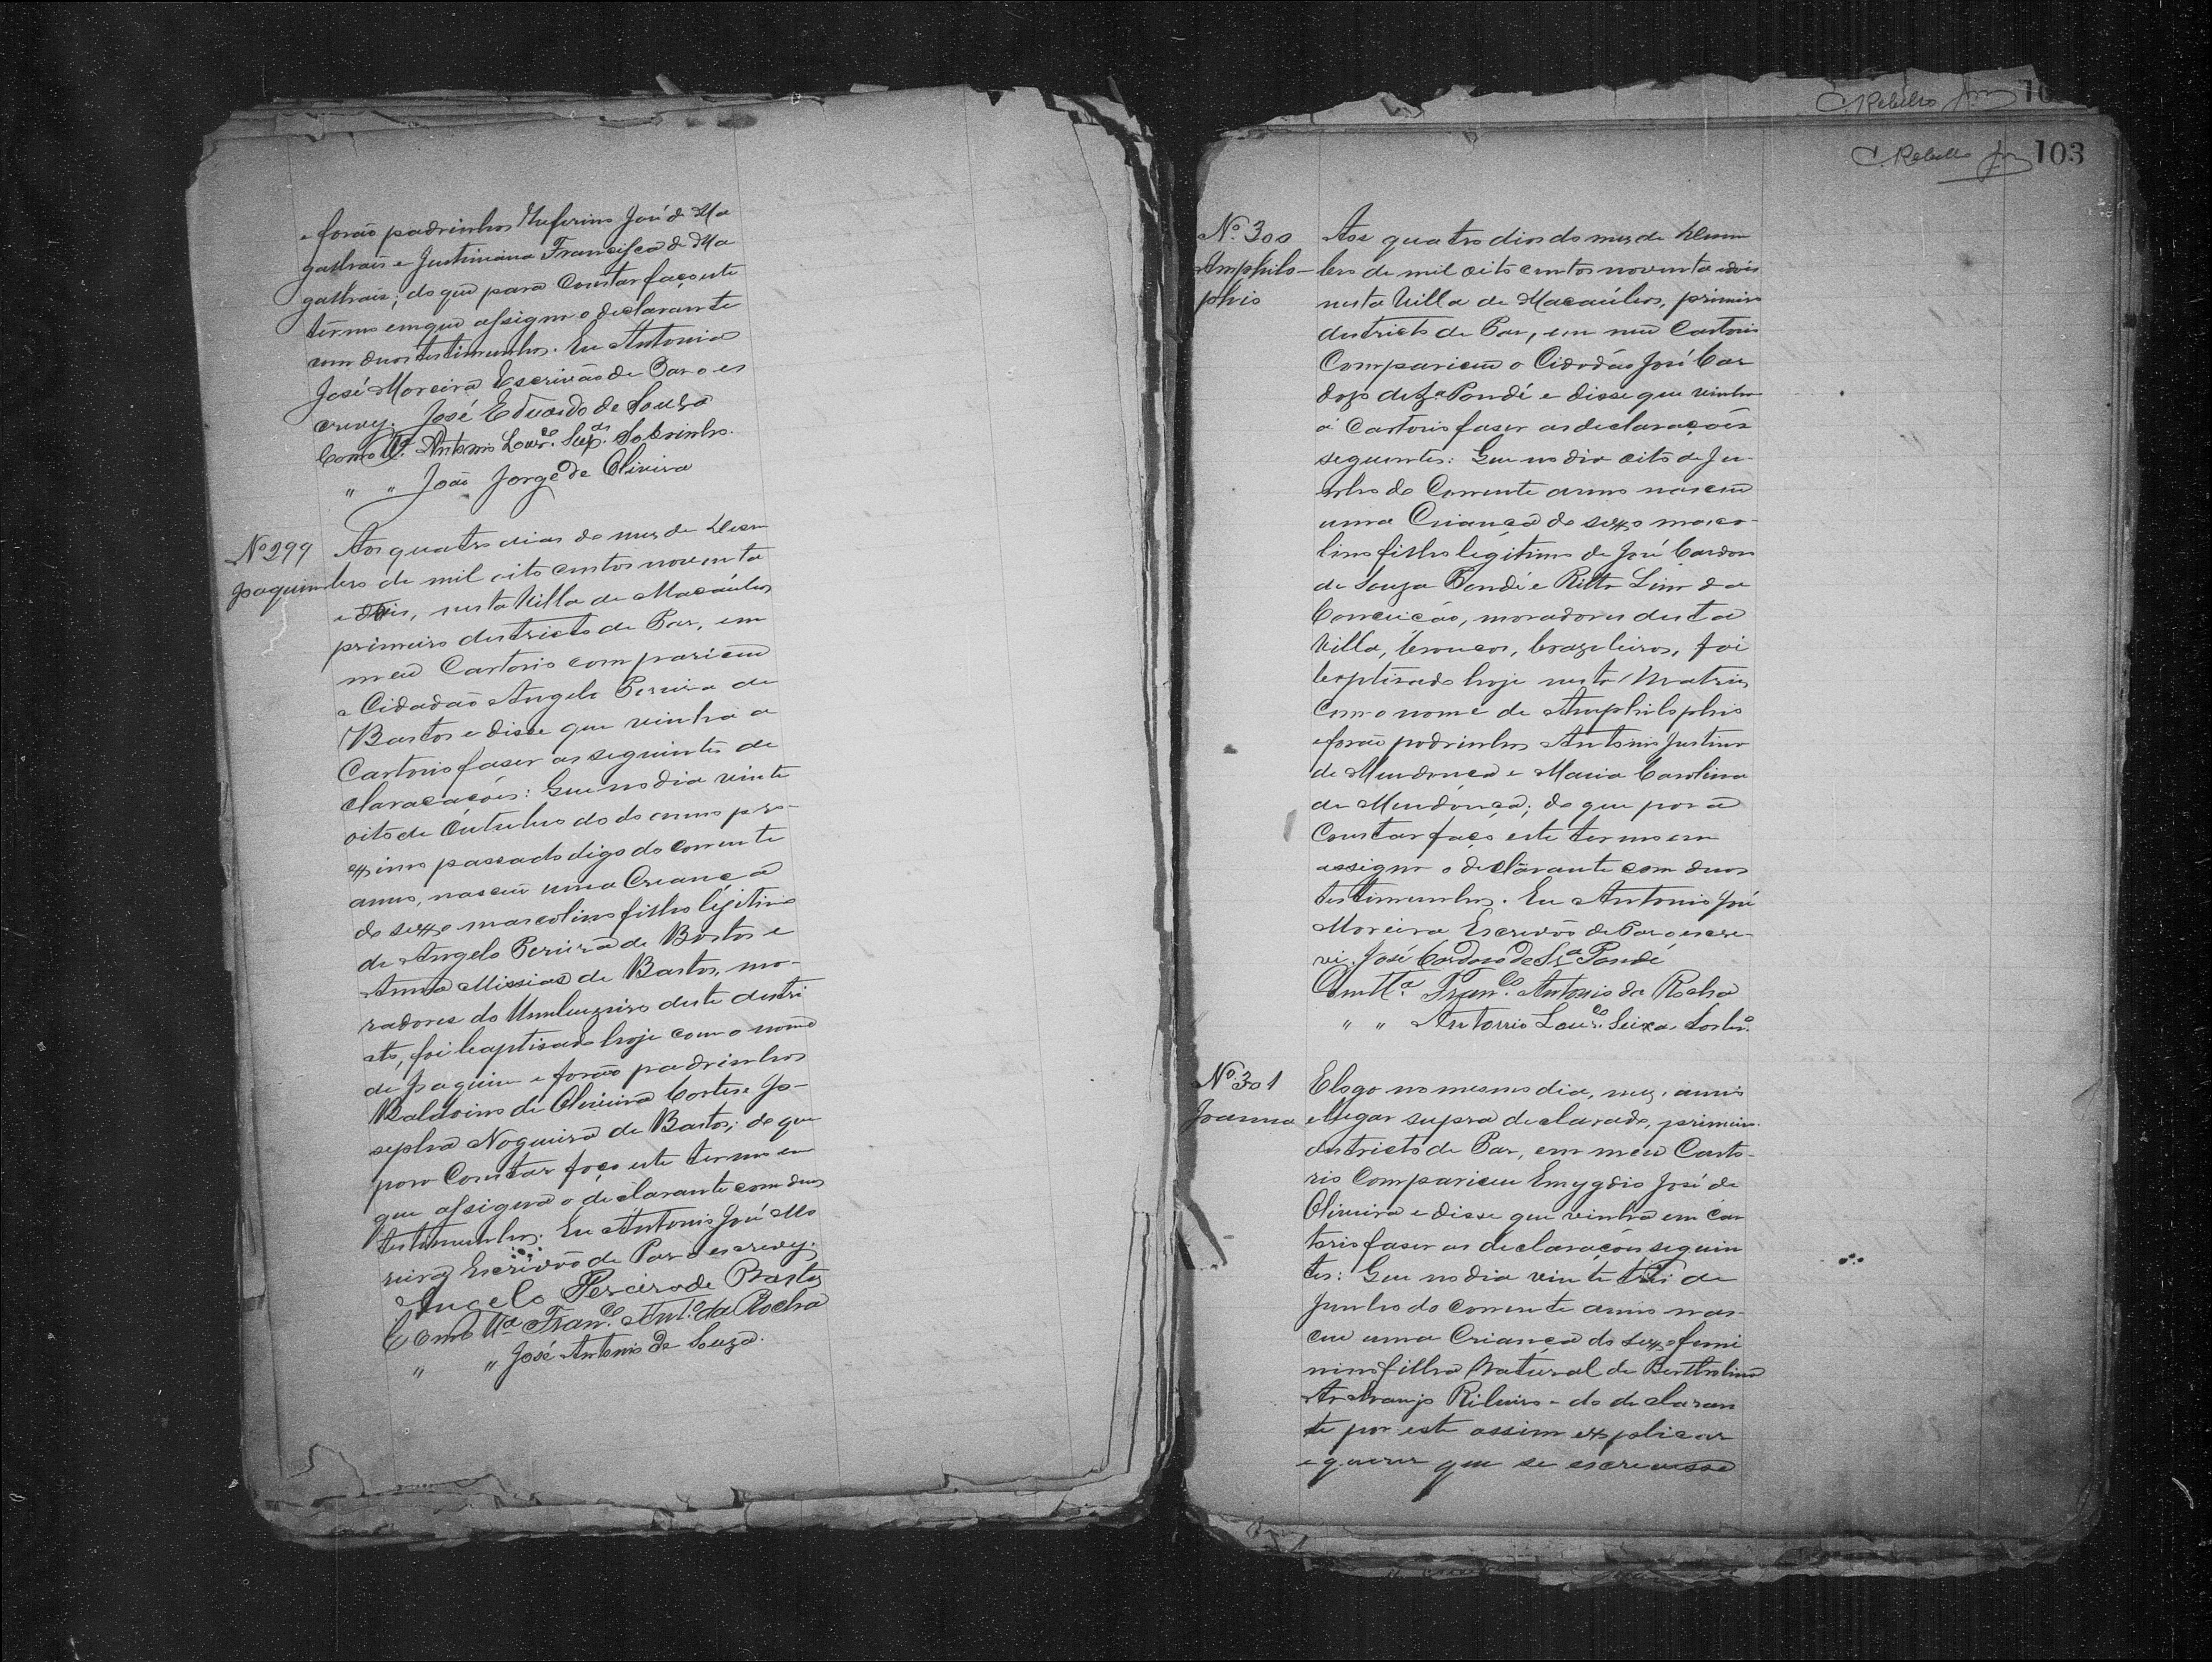 e forão padrinhos Zuferino José de Ma
galhaís e Justiniana Francisca de Ma
galhaís; do que para Constar faço este
termo em que assigna o declarante
com duas testimunhas. Eu Antonio
José Moreira Escrivão de Paz o es
crevy. José Eduardo de Souza
Como Ta. Antonio Lourço. Seixas Sobrinho.
" " João Jorge de Oliveira
No 299
Joaquim
Aos quatro dias do mes de Dezem
bro de mil oito centos noventa
e dois, nesta Villa de Macaúbas
primeiro destricto de Paz, em
meu Cartorio compariceu
o Cidadão Angelo Pereira de
Bastos e disse que vinha a
Cartorio faser as seguintes de
claracações: Que no dia vinte
oito de Outubro do do anno pro-
ximo passado digo do corrente
anno, nasceu uma Creança
do sexxo mascolino filho légitimo
de Angelo Pereira de Bastos e
Anna Missias de Bastos, mo-
radores do Umbuzeiro deste destri
cto, foi baptisado hoje com o nome
de Joaquim e forão padrinhos
Baldoino de Oliveira Cortes e Jo-
sepha Nogueira de Bastos; do que
para Constar faço este termo em
que assigna o declarante com duas
testimunhas. Eu Antonio José Mo
reira Escrivão de Paz o escrevy.
Angelo Pereira de Bastos
Como Ta Franco. Anto. da Rocha
" " José Antonio de Souza.
C. Rebello Jor 10
C. Rebello Jor 103
No. 300
Amphilo-
phio
Aos quatro dias do mes de Dezem
bro de mil oito centos noventa e dois
nesta Villa de Macaúbas, primeiro
destricto de Paz, em meu Cartorio
Compariceu o Cidadão José Car
dozo de Sza Pondé e disse que vinha
a Cartorio faser as declarações
seguintes: Que no dia oito de Ju-
nho do Corrente anno nasceu
uma Criança do sexxo masco-
lino filho légitimo de José Cardoso
de Souza Pondé e Ritta Lima da
Conceição, moradores desta
Villa, brancos, brazileiros, foi
baptisado hoje nesta Matris
Com o nome de Amphilophio
e forão padrinhos Antonio Justino
de Mendonça e Maria Carolina
de Mendónça; do que para
Constar faço este termo em
assigna o declarante com duas
testimunhas. Eu Antonio José
Moreira Escrivão de Paz o escre-
vi. José Cardoso de Sza Pondé
Com Ta. Franco. Antonio da Rocha
" " Antonio Lourço. Seixas Sobro.
No. 301
Joanna
E logo no mesmo dia, mez, anno
e lugar supra declarado, primeiro
destricto de Paz, em meu Carto-
rio Compariceu Emygdio José de
Oliveira e disse que vinha em Car
torio faser as declarações seguin
tes: Que no dia vinte três de
Junho do corrente anno nas-
ceu uma Criança do sexxo femi
nino filha Natural de Bertholina
Araujo Ribeiro e do declaran
te por este assim explicar
e querer que se escrevesse